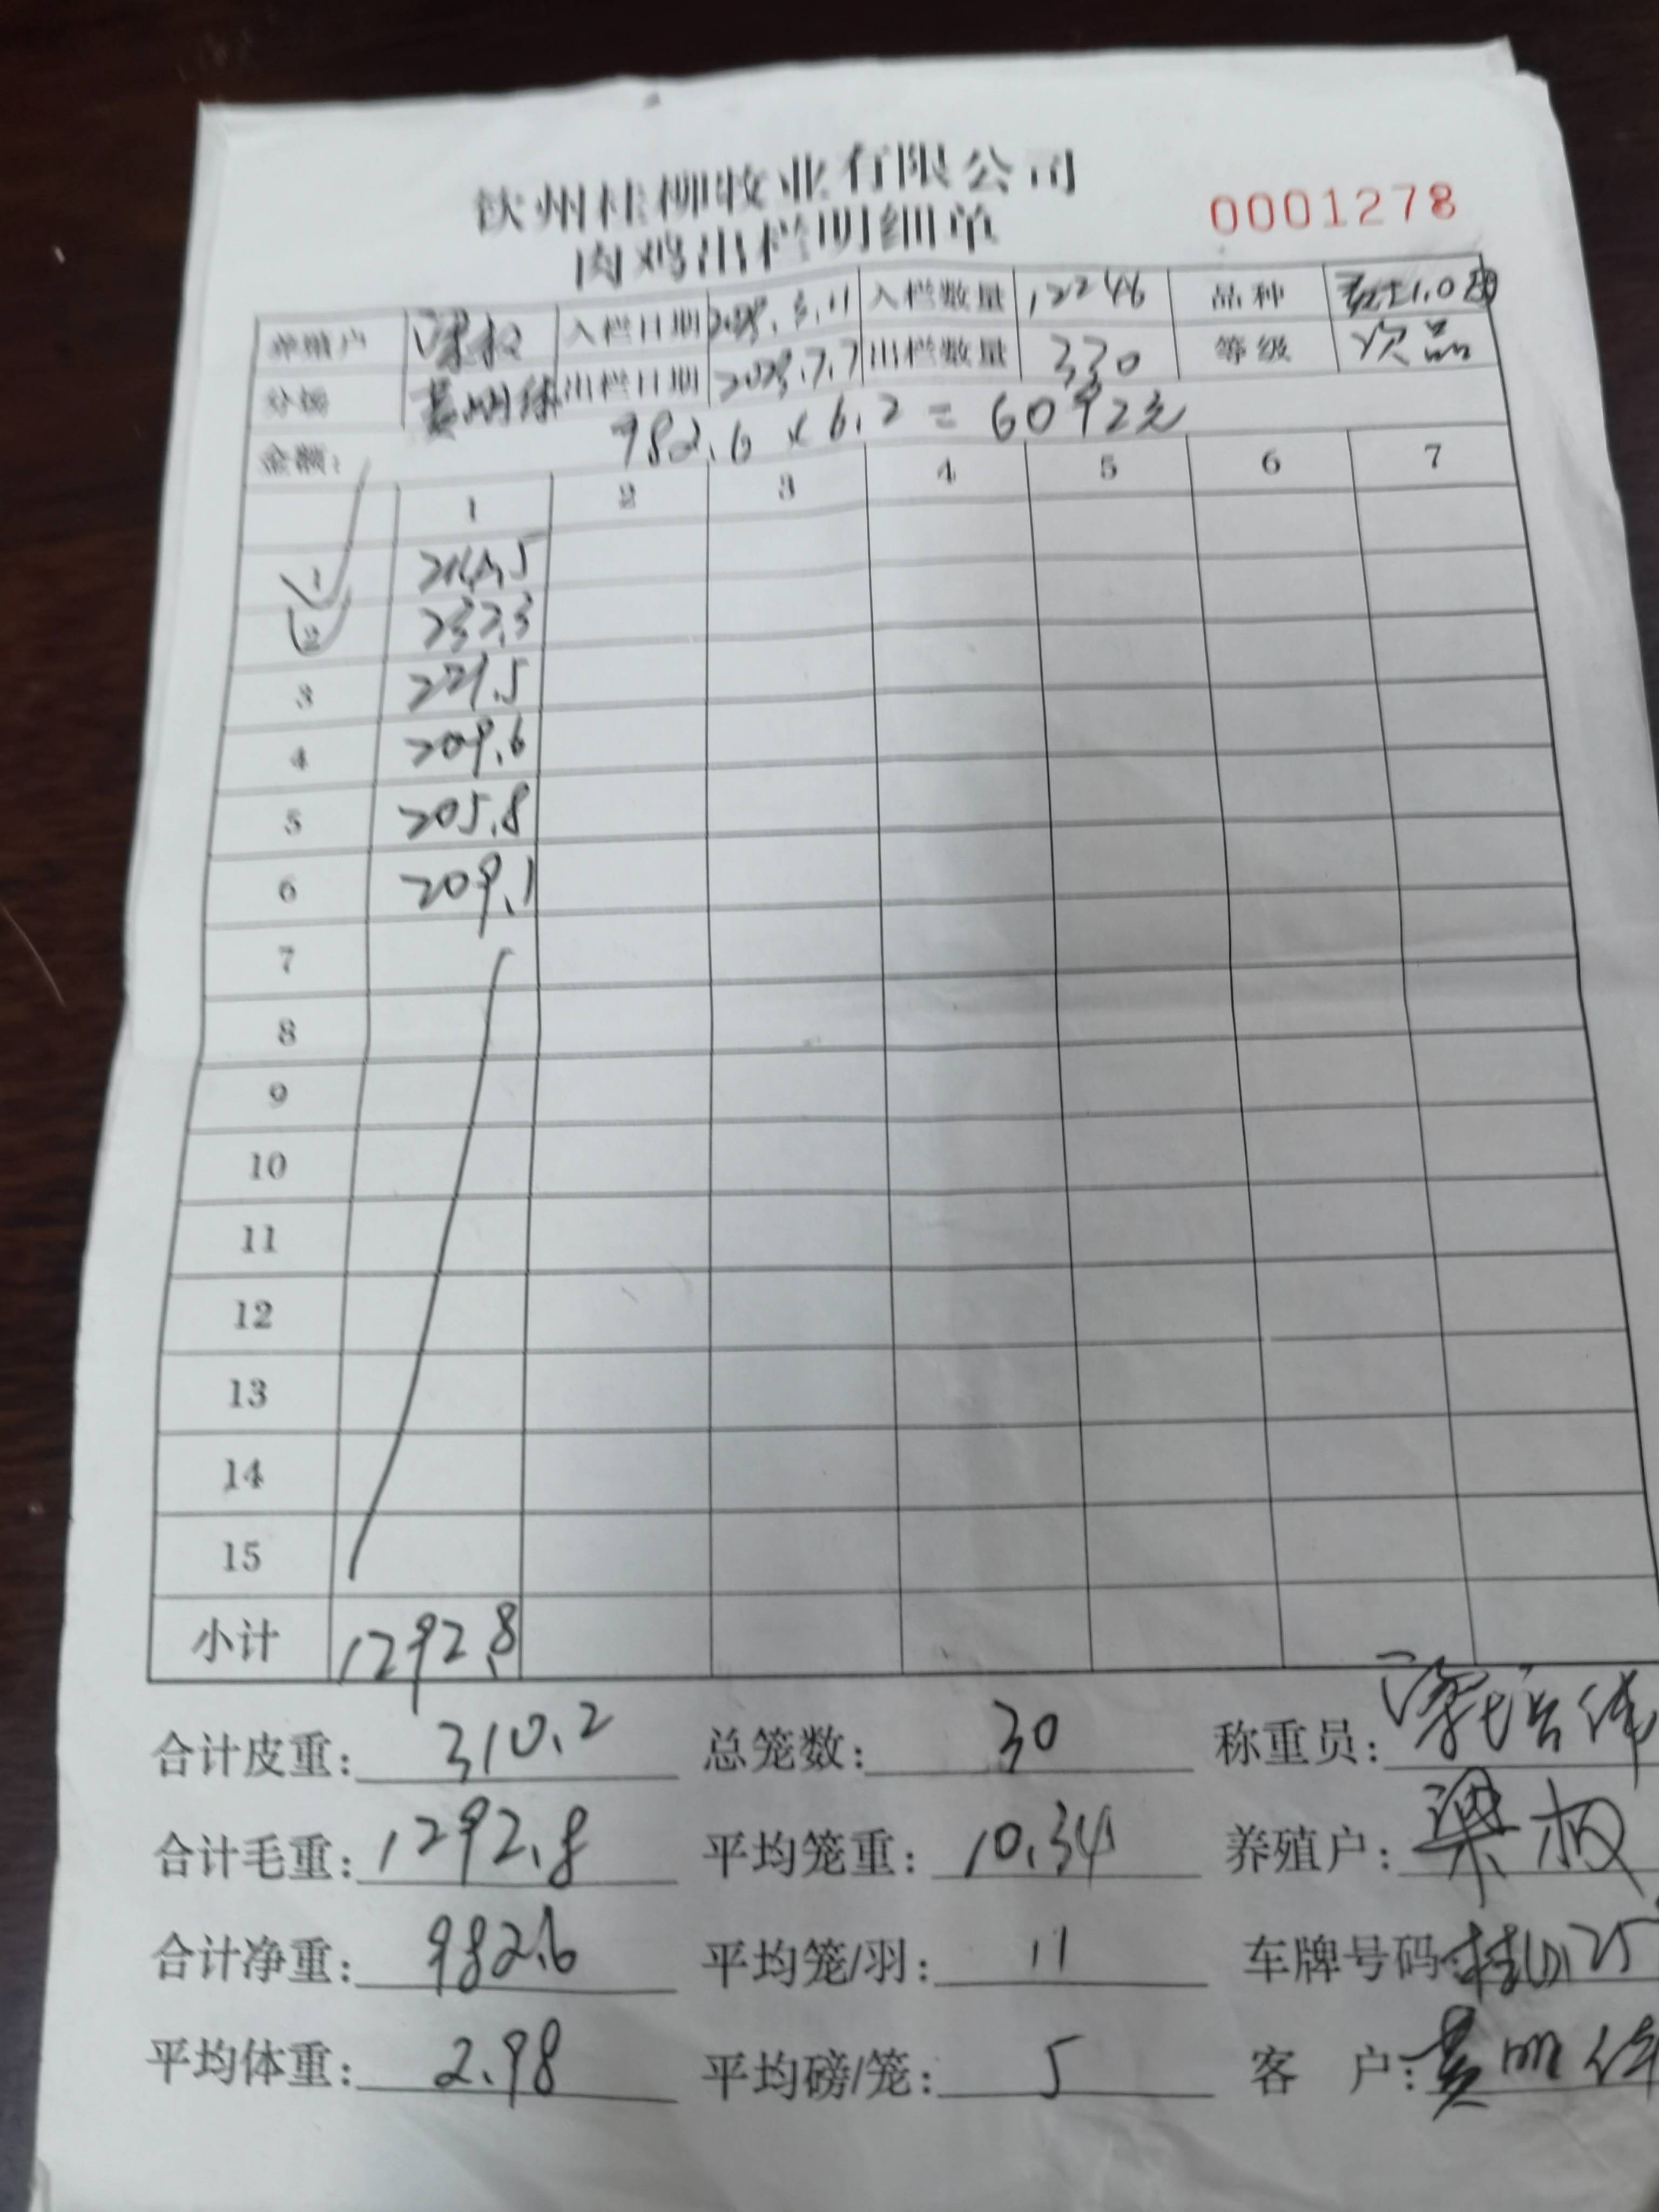 钦州桂柳牧业有限公司
肉鸡出栏明细单
0001278
养殖户 梁权 入栏日期 3.11 入栏数量 12246 品种
分场 出栏日期 2023.7.7 出栏数量 330 等级 次品
金额: 982.6 x 6.2 = 6092元
1 2 3 4 5 6 7
1
2 232.3
3 221.5
4 209.6
5 205.8
6 209.1
7
8
9
10
11
12
13
14
15
小计 1292.8
合计皮重: 310.2 总笼数: 30 称重员:
合计毛重: 1292.8 平均笼重: 10.34 养殖户: 梁权
合计净重: 982.6 平均笼/羽: 11 车牌号码:
平均体重: 2.98 平均磅/笼: 5 客 户: